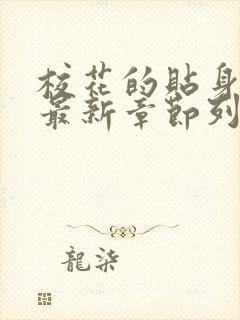 校花的貼身
最新章節列
龍柒